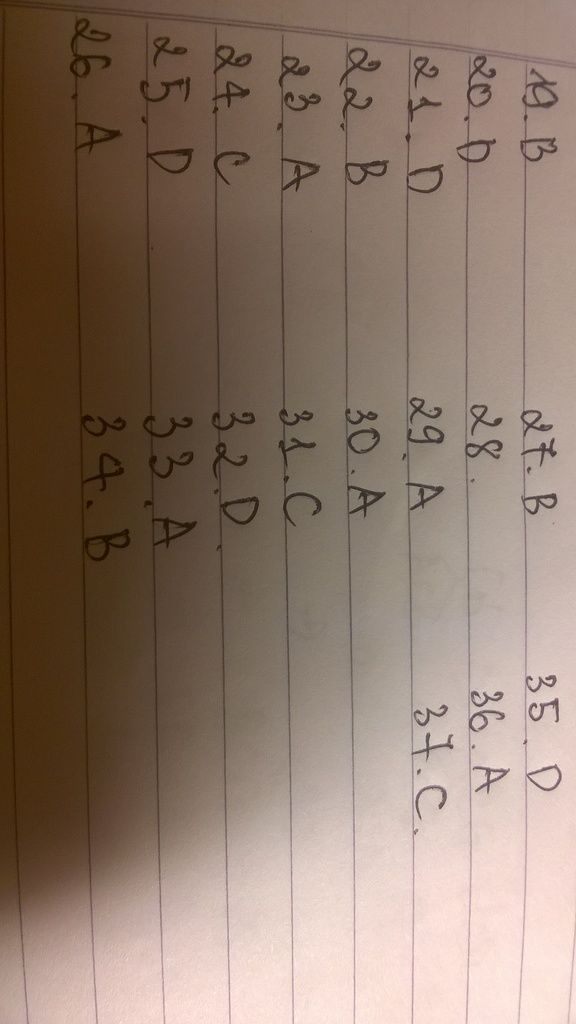 19. B 27. B 35. D
20. D 28. 36. A
21. D 29. A 37. C.
22. B 30. A
23. A 31. C
24. C 32. D.
25. D 33. A
26. A 34. B